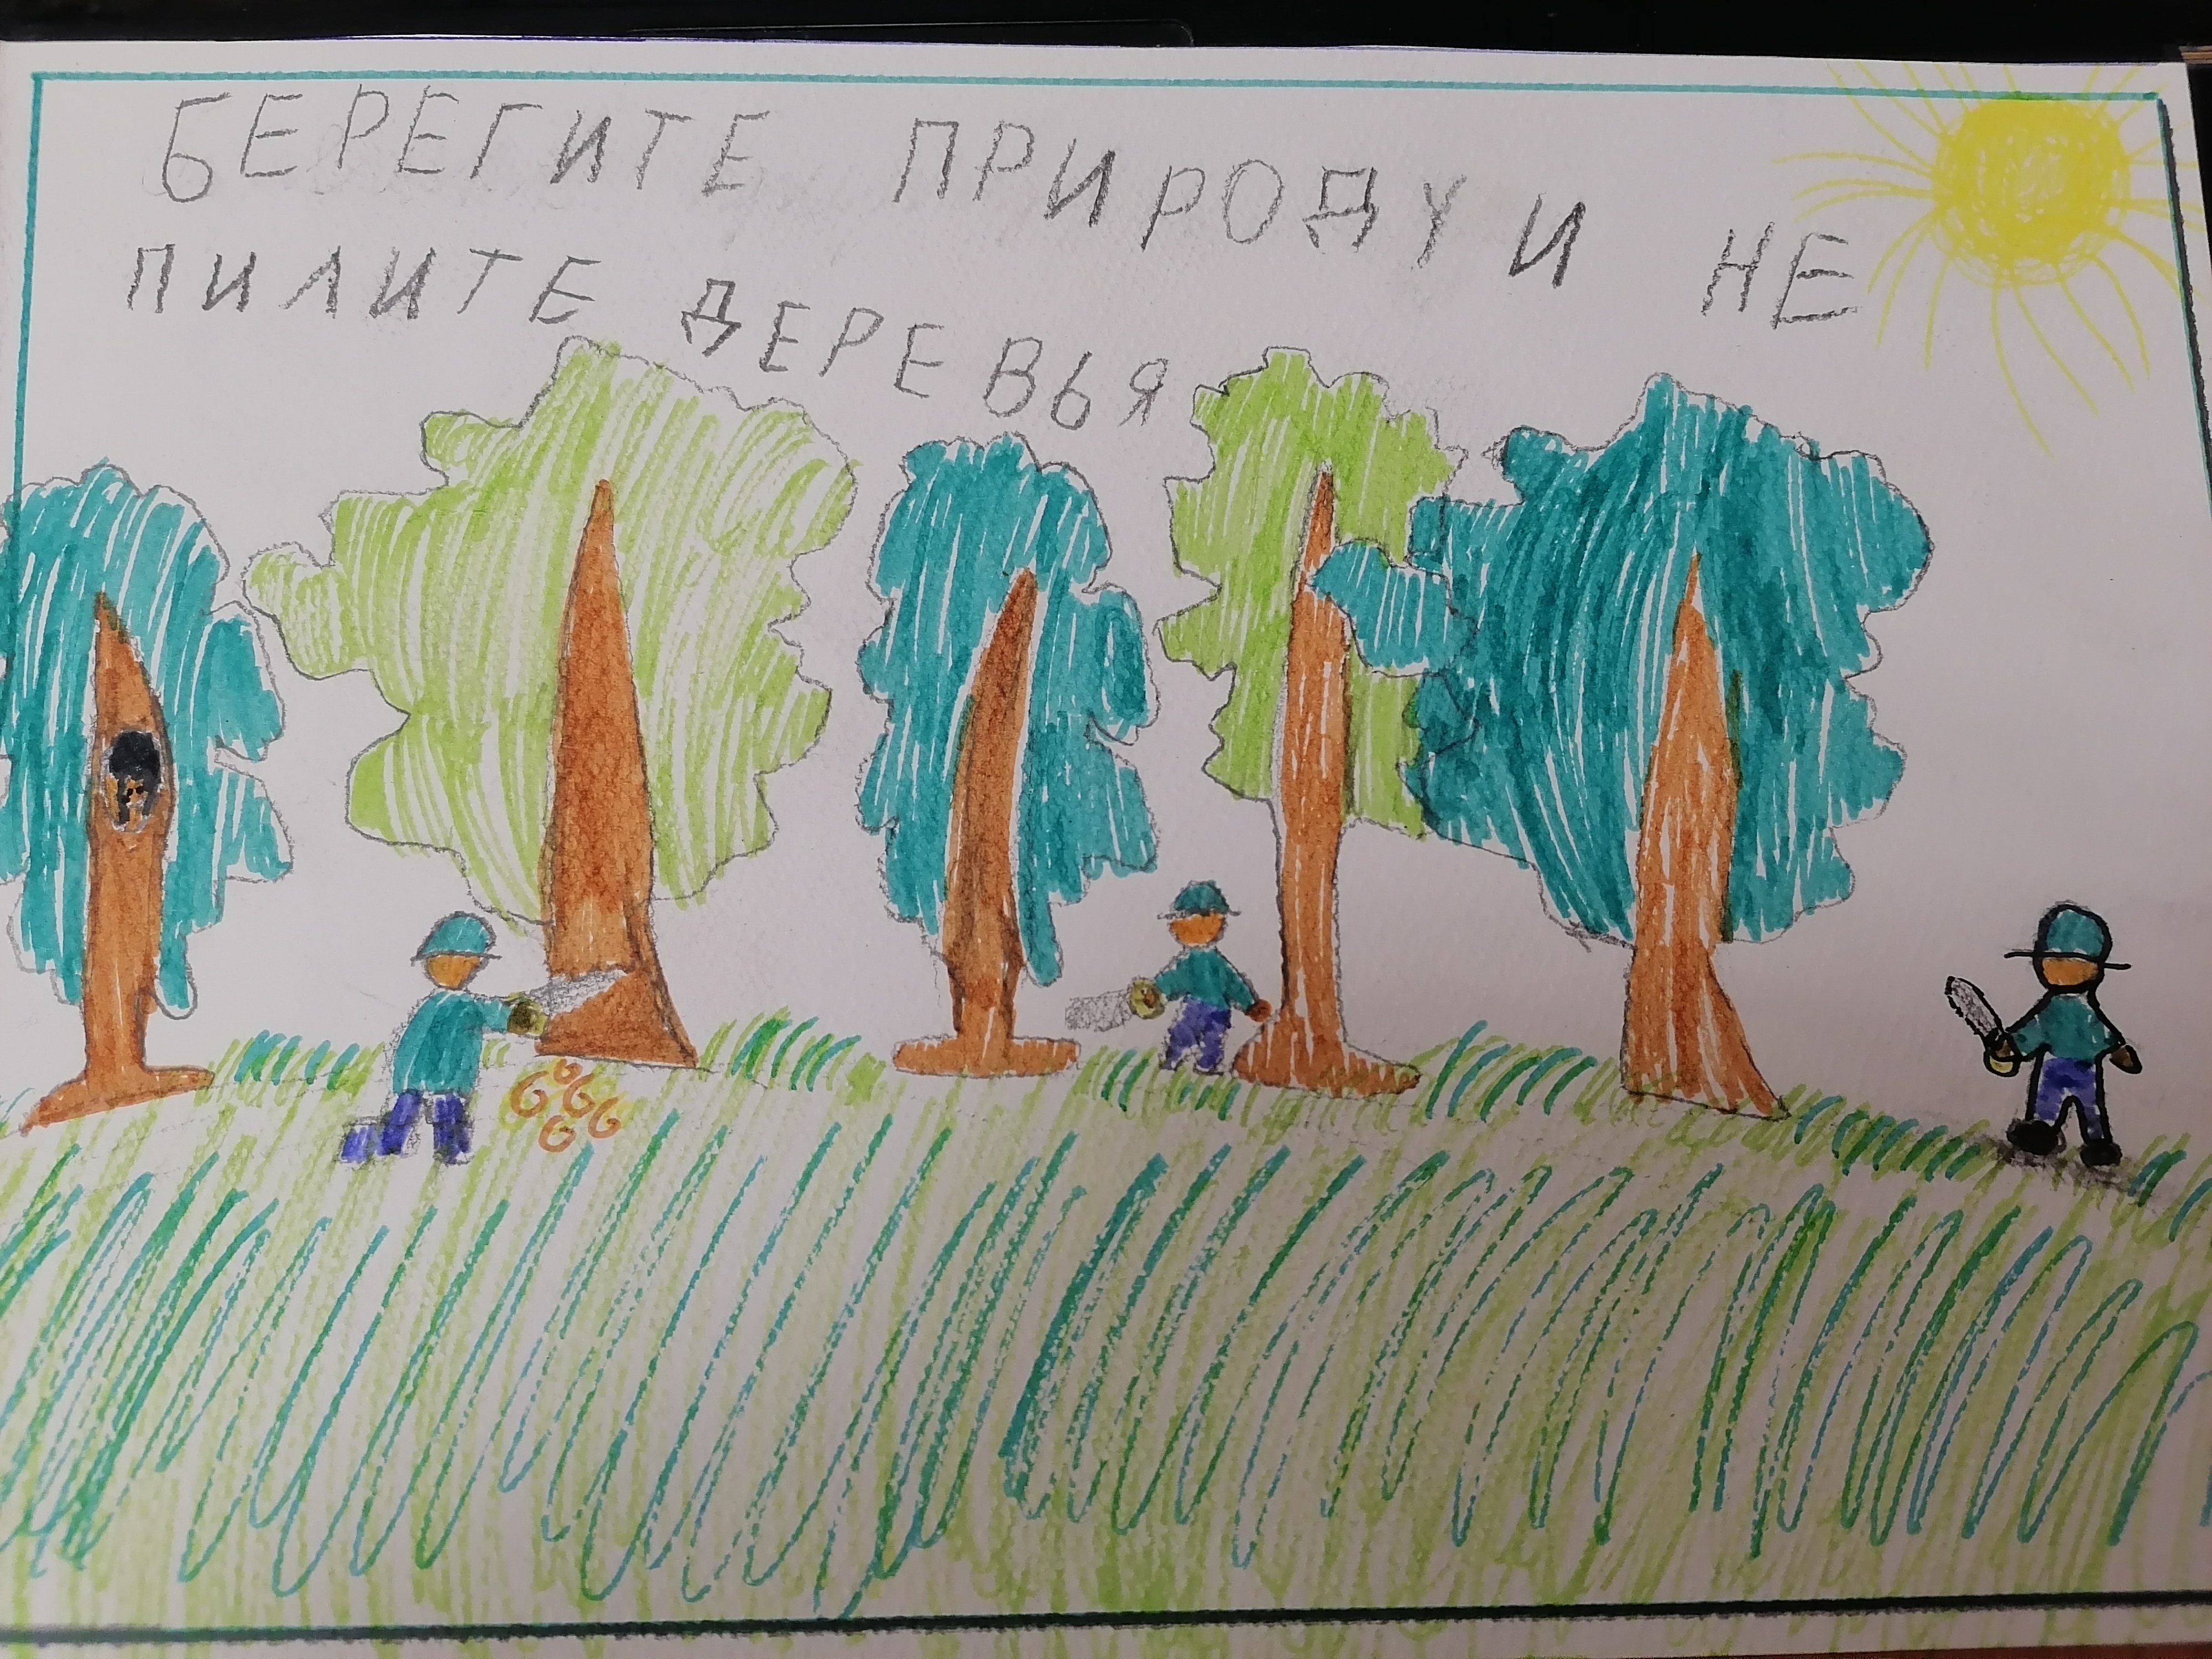 БЕРЕГИТЕ ПРИРОДУ И НЕ
ПИЛИТЕ ДЕРЕВЬЯ